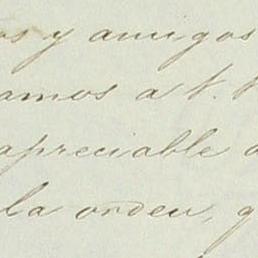 os y amigos
amos a V. V
apreciable
la orden, q